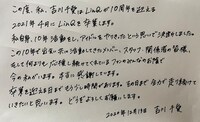 この度、私、吉川千愛はLinQが10周年を迎える
2021年4月にLinQを
卒業します。
私自身、10年活動をし、アイドルをやりきったという思いで決断をしました。
この10年で出会い共に活動してきたメンバー、スタッフ、関係者の皆様、
そして何より、応援し続けてきてくれているファンのみなさんのお陰で
今の私がいます。本当に感謝してます。
卒業を迎える日まで残り少ない期間があります。その日まで全力で走り続けて
いきたいと思います。どうぞよろしくお願いします。
2020年10月19日 吉川千愛